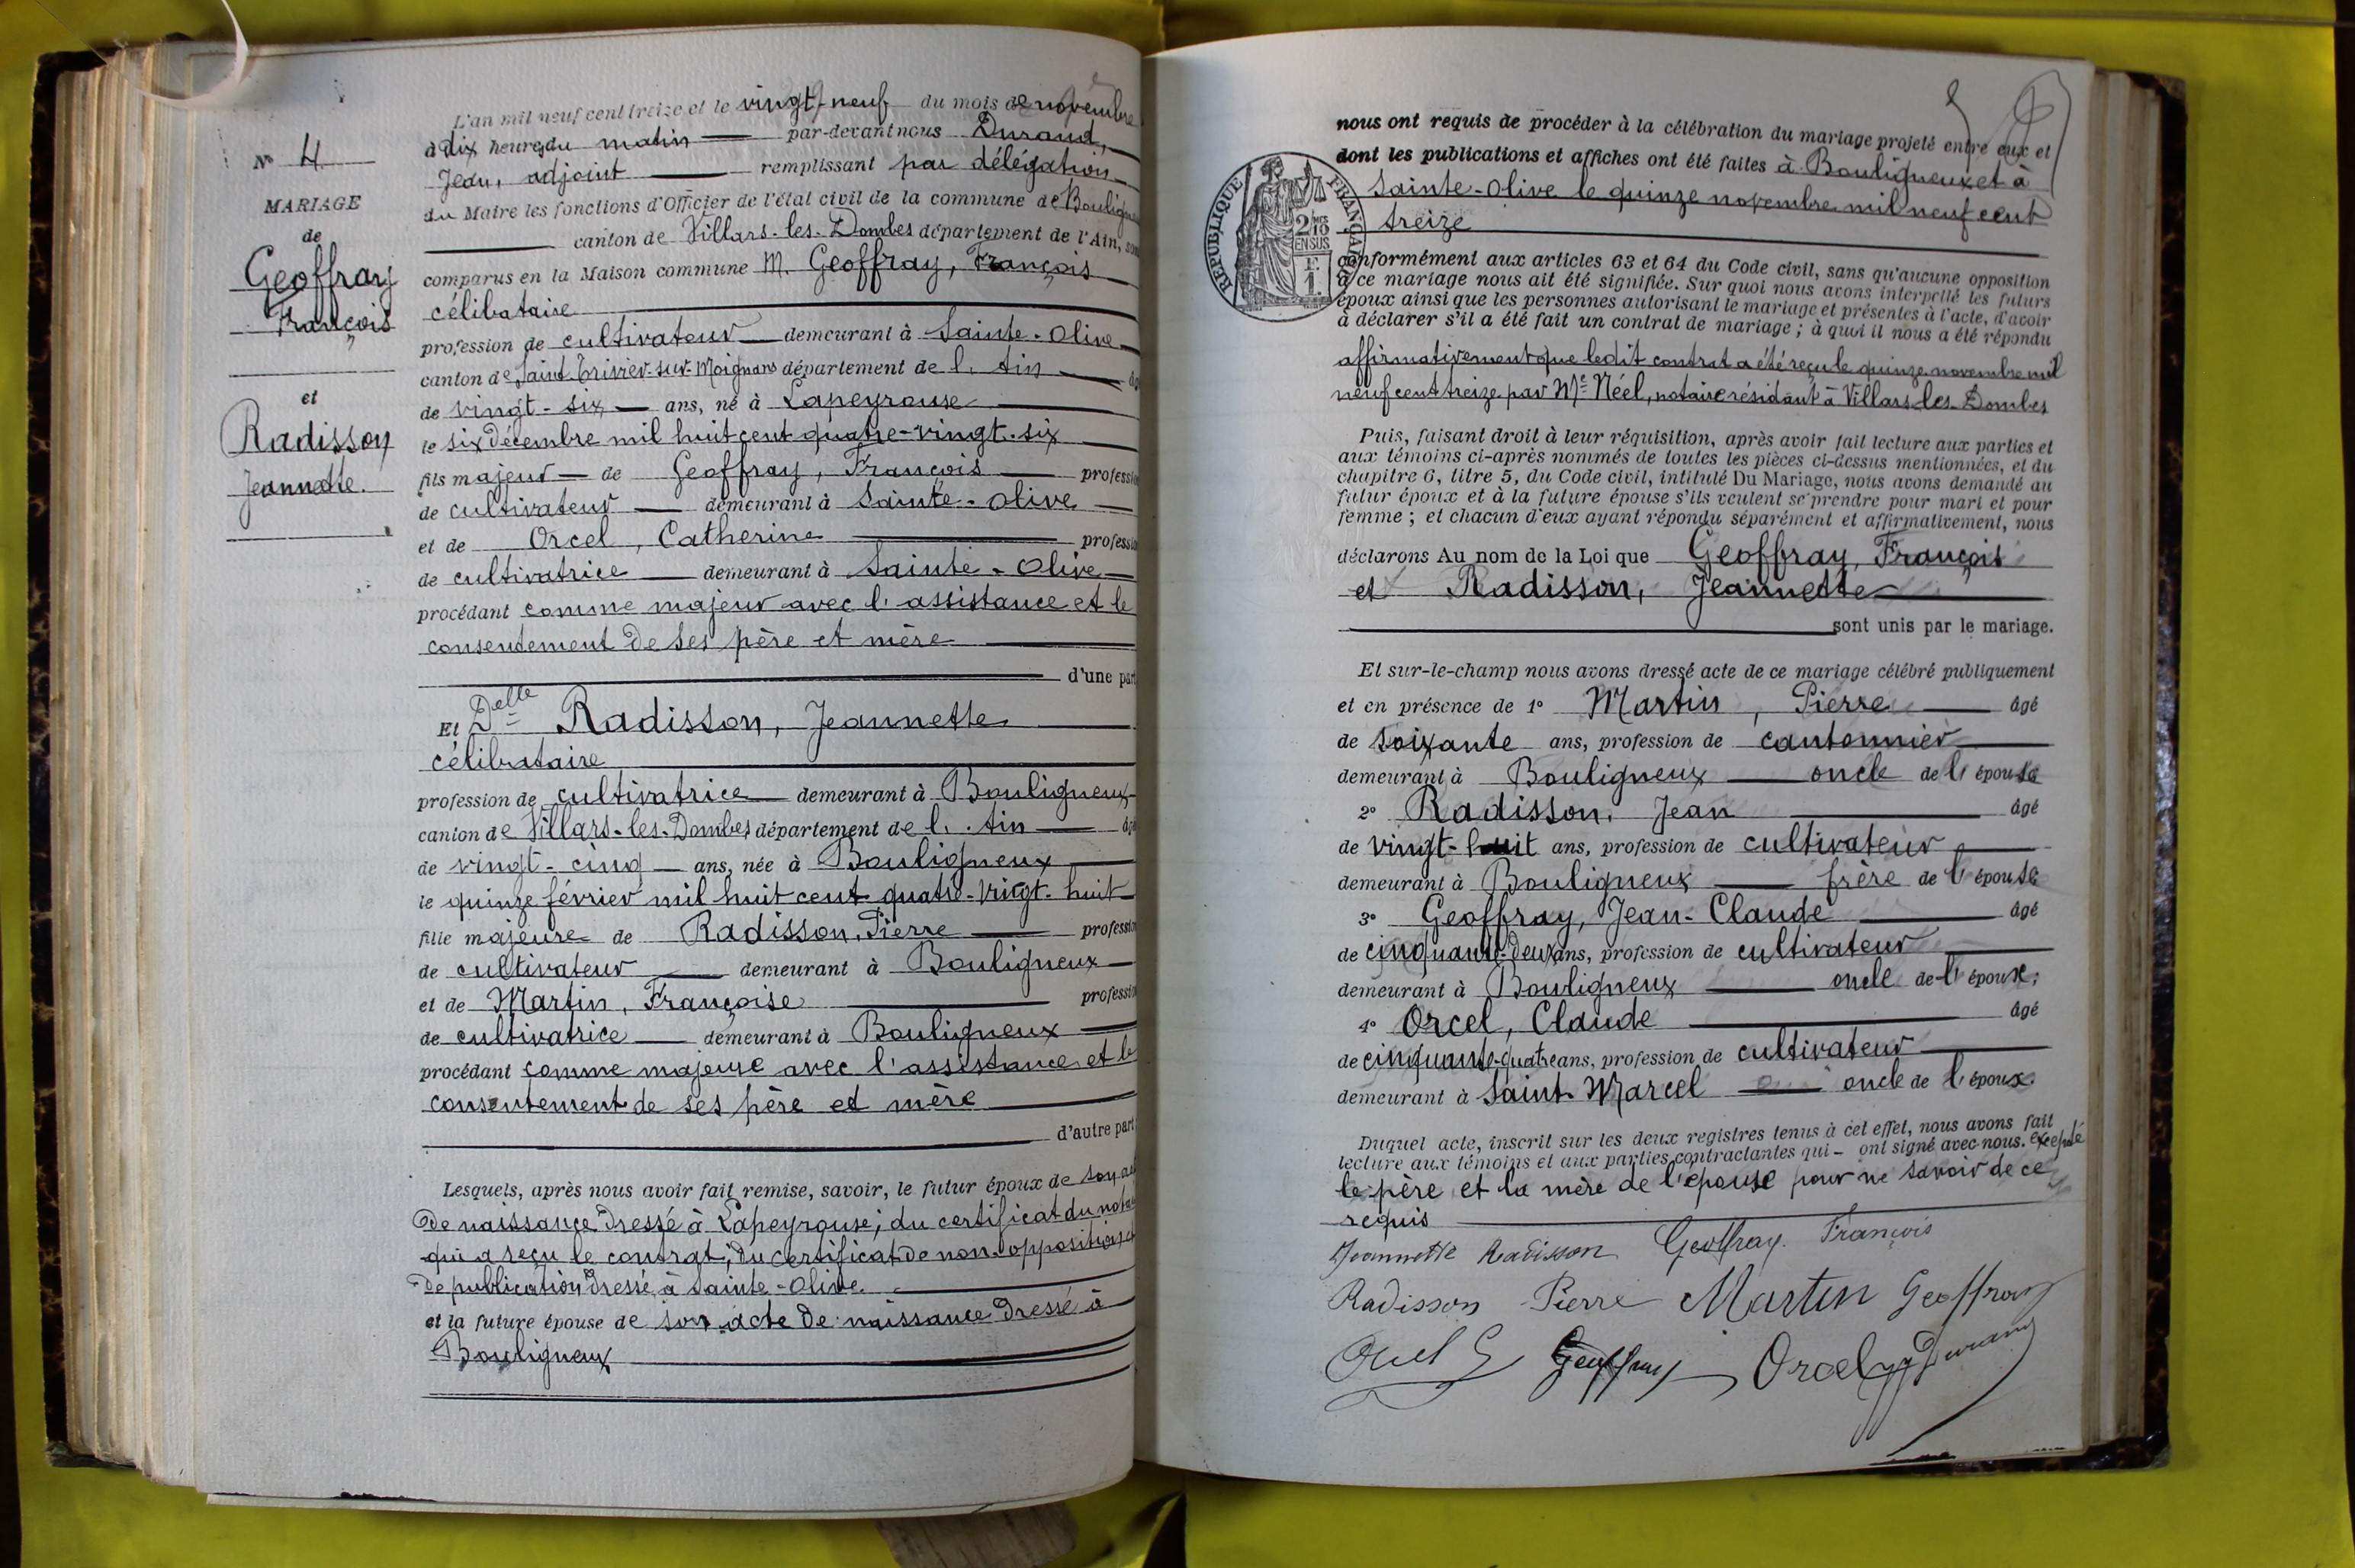 L'an mil neuf cent treize et le vingt-neuf du mois de novembre
à dix heures du matin par-devant nous Durand,
Jean, adjoint remplissant par délégation
du Maire les fonctions d'Officier de l'état civil de la commune de Bouligneux
canton de Villars-les-Dombes département de l'Ain, sont
comparus en la Maison commune M. Geoffray, François
célibataire
profession de cultivateur demeurant à Sainte-Olive
canton de Saint-Trivier-sur-Moignans département de l'Ain âgé
de vingt-six ans, né à Lapeyrouse
le six décembre mil huit cent quatre-vingt-six
fils majeur de Geoffray, François profession
de cultivateur demeurant à Sainte-Olive
et de Orcel, Catherine profession
de cultivatrice demeurant à Sainte-Olive
procédant comme majeur avec l'assistance et le
consentement de ses père et mère
d'une part
Et Delle Radisson, Jeannette
célibataire
profession de cultivatrice demeurant à Bouligneux
canton de Villars-les-Dombes département de l'Ain âgé
de vingt-cinq ans, née à Bouligneux
le quinze février mil huit cent quatre-vingt-huit
fille majeure de Radisson, Pierre profession
de cultivateur demeurant à Bouligneux
et de Martin, Françoise profession
de cultivatrice demeurant à Bouligneux
procédant comme majeure avec l'assistance et le
consentement de ses père et mère
d'autre part
Lesquels, après nous avoir fait remise, savoir, le futur époux de son acte
de naissance dressé à Lapeyrouse; du certificat du notaire
qui a reçu le contrat; du certificat de non-opposition et
de publication dressé à Sainte-Olive.
et la future épouse de son acte de naissance dressé à
Bouligneux
N° 4
MARIAGE
de
Geoffray
François
et
Radisson
Jeannette.
nous ont requis de procéder à la célébration du mariage projeté entre eux et
dont les publications et affiches ont été faites à Bouligneux et à
Sainte-Olive le quinze novembre mil neuf cent
treize
RÉPUBLIQUE FRANÇAISE
2/10
EN SUS
F.
1.
conformément aux articles 63 et 64 du Code civil, sans qu'aucune opposition
à ce mariage nous ait été signifiée. Sur quoi nous avons interpellé les futurs
époux ainsi que les personnes autorisant le mariage et présentes à l'acte, d'avoir
à déclarer s'il a été fait un contrat de mariage; à quoi il nous a été répondu
affirmativement que ledit contrat a été reçu le quinze novembre mil
neuf cent treize par Me Néel, notaire résidant à Villars-les-Dombes
Puis, faisant droit à leur réquisition, après avoir fait lecture aux parties et
aux témoins ci-après nommés de toutes les pièces ci-dessus mentionnées, et du
chapitre 6, titre 5, du Code civil, intitulé Du Mariage, nous avons demandé au
futur époux et à la future épouse s'ils veulent se prendre pour mari et pour
femme; et chacun d'eux ayant répondu séparément et affirmativement, nous
déclarons Au nom de la Loi que Geoffray, François
et Radisson, Jeannette
sont unis par le mariage.
Et sur-le-champ nous avons dressé acte de ce mariage célébré publiquement
et en présence de 1° Martin, Pierre âgé
de soixante ans, profession de cantonnier
demeurant à Bouligneux oncle de l'épouse
2° Radisson, Jean âgé
de vingt-huit ans, profession de cultivateur
demeurant à Bouligneux frère de l'épouse
3° Geoffray, Jean-Claude âgé
de cinquante-deux ans, profession de cultivateur
demeurant à Bouligneux oncle de l'époux;
4° Orcel, Claude âgé
de cinquante-quatre ans, profession de cultivateur
demeurant à Saint-Marcel oncle de l'époux.
Duquel acte, inscrit sur les deux registres tenus à cet effet, nous avons fait
lecture aux témoins et aux parties contractantes qui ont signé avec nous. excepté
le père et la mère de l'épouse pour ne savoir de ce
requis
Jeannette Radisson Geoffray François
Radisson Pierre Martin Geoffray
Orcel G Geoffray Orcel Durand